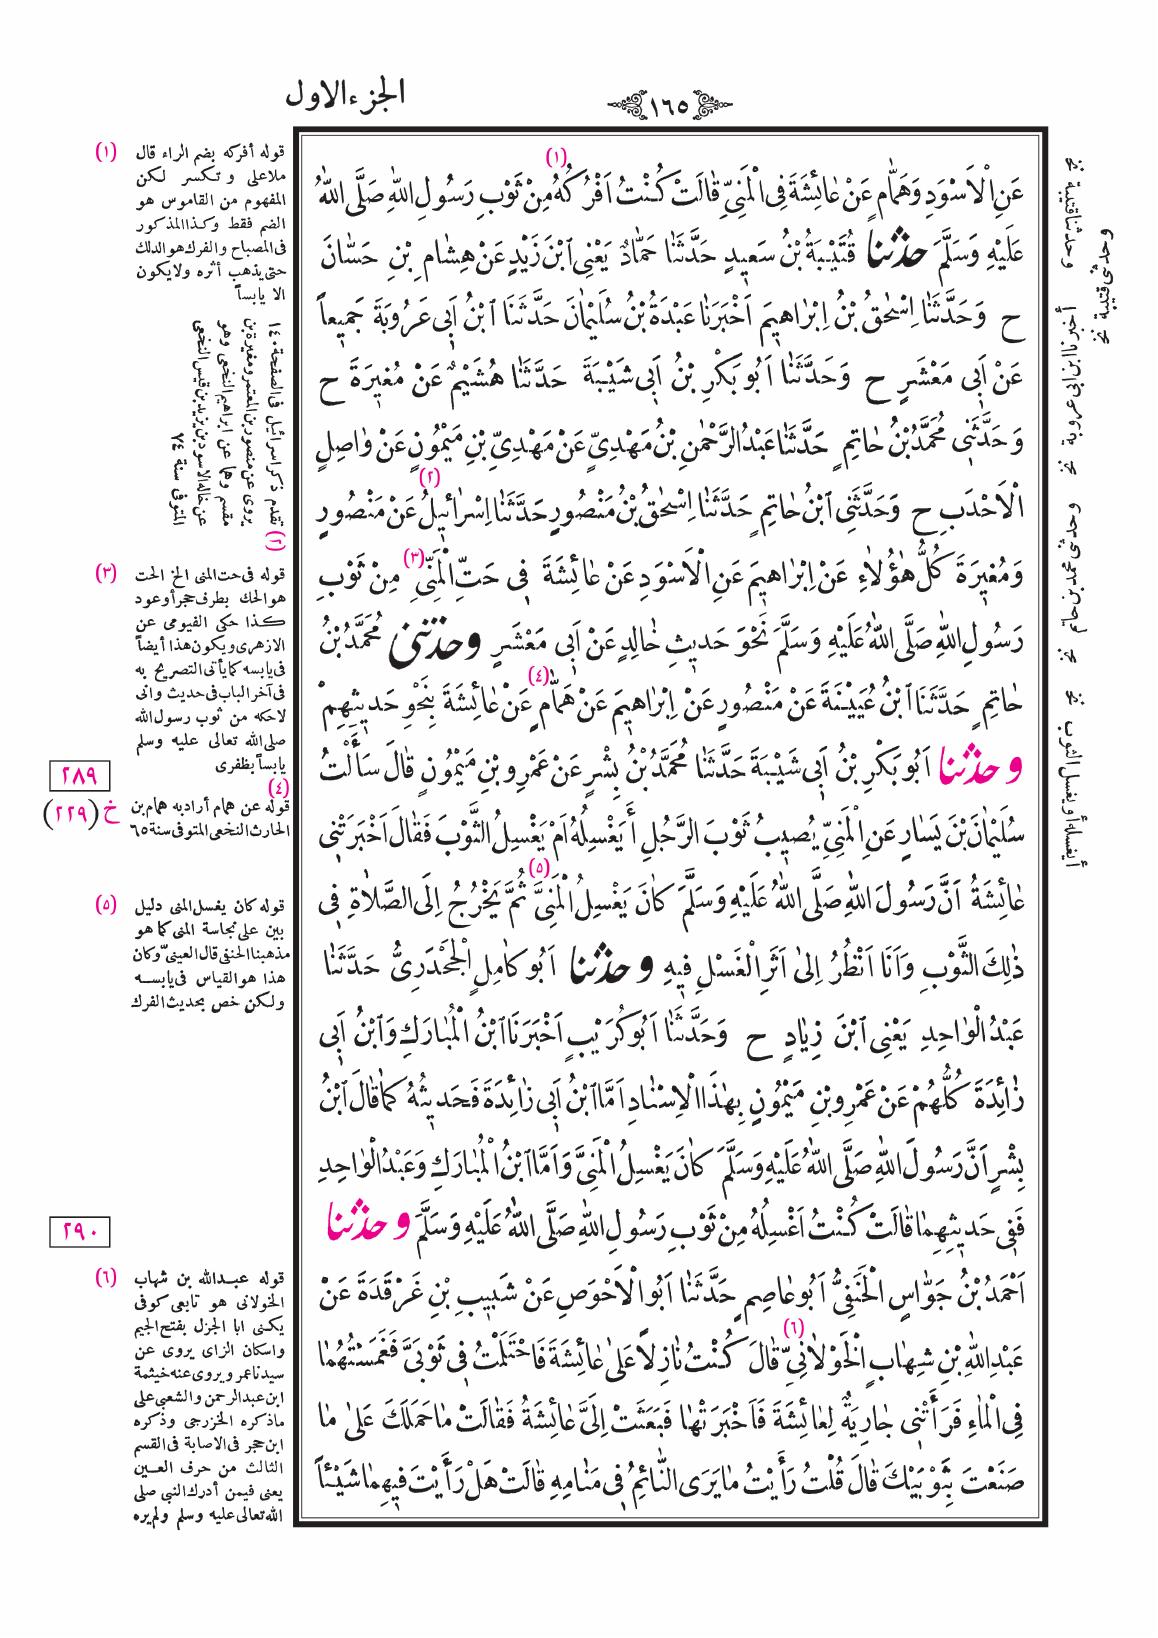 الجزء الاول
١٦٥
عَنِ الْاَسْوَدِ وَهَمَّامٍ عَنْ عَائِشَةَ فِى الْمَنِىِّ قَالَتْ كُنْتُ اَفْرُكُهُ (١) مِنْ ثَوْبِ رَسُولِ اللّٰهِ صَلَّى اللّٰهُ
عَلَيْهِ وَسَلَّمَ حدثنا قُتَيْبَةُ بْنُ سَعِيدٍ حَدَّثَنَا حَمَّادٌ يَعْنِى ابْنَ زَيْدٍ عَنْ هِشَامِ بْنِ حَسَّانَ
ح وَحَدَّثَنَا اِسْحٰقُ بْنُ اِبْرَاهِيمَ اَخْبَرَنَا عَبْدَةُ بْنُ سُلَيْمَانَ حَدَّثَنَا ابْنُ اَبِى عَرُوبَةَ جَمِيعاً
عَنْ اَبِى مَعْشَرٍ ح وَحَدَّثَنَا اَبُو بَكْرِ بْنُ اَبِى شَيْبَةَ حَدَّثَنَا هُشَيْمٌ عَنْ مُغِيرَةَ ح
وَحَدَّثَنِى مُحَمَّدُ بْنُ حَاتِمٍ حَدَّثَنَا عَبْدُ الرَّحْمٰنِ بْنُ مَهْدِىٍّ عَنْ مَهْدِىِّ بْنِ مَيْمُونٍ عَنْ وَاصِلٍ
الْاَحْدَبِ ح وَحَدَّثَنِى ابْنُ حَاتِمٍ حَدَّثَنَا اِسْحٰقُ بْنُ مَنْصُورٍ حَدَّثَنَا اِسْرَائِيلُ (٢) عَنْ مَنْصُورٍ
وَمُغِيرَةَ كُلُّ هٰؤُلَاءِ عَنْ اِبْرَاهِيمَ عَنِ الْاَسْوَدِ عَنْ عَائِشَةَ فِى حَتِّ الْمَنِىِّ (٣) مِنْ ثَوْبِ
رَسُولِ اللّٰهِ صَلَّى اللّٰهُ عَلَيْهِ وَسَلَّمَ نَحْوَ حَدِيثِ خَالِدٍ عَنْ اَبِى مَعْشَرٍ وحدثنى مُحَمَّدُ بْنُ
حَاتِمٍ حَدَّثَنَا ابْنُ عُيَيْنَةَ عَنْ مَنْصُورٍ عَنْ اِبْرَاهِيمَ عَنْ هَمَّامٍ (٤) عَنْ عَائِشَةَ بِنَحْوِ حَدِيثِهِمْ
وحدثنا اَبُو بَكْرِ بْنُ اَبِى شَيْبَةَ حَدَّثَنَا مُحَمَّدُ بْنُ بِشْرٍ عَنْ عَمْرِو بْنِ مَيْمُونٍ قَالَ سَأَلْتُ
سُلَيْمَانَ بْنَ يَسَارٍ عَنِ الْمَنِىِّ يُصِيبُ ثَوْبَ الرَّجُلِ أَيَغْسِلُهُ اَمْ يَغْسِلُ الثَّوْبَ فَقَالَ اَخْبَرَتْنِى
عَائِشَةُ اَنَّ رَسُولَ اللّٰهِ صَلَّى اللّٰهُ عَلَيْهِ وَسَلَّمَ كَانَ يَغْسِلُ الْمَنِىَّ (٥) ثُمَّ يَخْرُجُ اِلَى الصَّلَاةِ فِى
ذٰلِكَ الثَّوْبِ وَاَنَا اَنْظُرُ اِلٰى اَثَرِ الْغَسْلِ فِيهِ وحدثنا اَبُو كَامِلٍ الْجَحْدَرِىُّ حَدَّثَنَا
عَبْدُ الْوَاحِدِ يَعْنِى ابْنَ زِيَادٍ ح وَحَدَّثَنَا اَبُو كُرَيْبٍ اَخْبَرَنَا ابْنُ الْمُبَارَكِ وَابْنُ اَبِى
زَائِدَةَ كُلُّهُمْ عَنْ عَمْرِو بْنِ مَيْمُونٍ بِهٰذَا الْاِسْنَادِ اَمَّا ابْنُ اَبِى زَائِدَةَ فَحَدِيثُهُ كَمَا قَالَ ابْنُ
بِشْرٍ اَنَّ رَسُولَ اللّٰهِ صَلَّى اللّٰهُ عَلَيْهِ وَسَلَّمَ كَانَ يَغْسِلُ الْمَنِىَّ وَاَمَّا ابْنُ الْمُبَارَكِ وَعَبْدُ الْوَاحِدِ
فَفِى حَدِيثِهِمَا قَالَتْ كُنْتُ اَغْسِلُهُ مِنْ ثَوْبِ رَسُولِ اللّٰهِ صَلَّى اللّٰهُ عَلَيْهِ وَسَلَّمَ وحدثنا
اَحْمَدُ بْنُ جَوَّاسٍ الْحَنَفِىُّ اَبُو عَاصِمٍ حَدَّثَنَا اَبُو الْاَحْوَصِ عَنْ شَبِيبِ بْنِ غَرْقَدَةَ عَنْ
عَبْدِ اللّٰهِ بْنِ شِهَابٍ الْخَوْلَانِىِّ (٦) قَالَ كُنْتُ نَازِلاً عَلٰى عَائِشَةَ فَاحْتَلَمْتُ فِى ثَوْبَىَّ فَغَمَسْتُهُمَا
فِى الْمَاءِ فَرَأَتْنِى جَارِيَةٌ لِعَائِشَةَ فَاَخْبَرَتْهَا فَبَعَثَتْ اِلَىَّ عَائِشَةُ فَقَالَتْ مَا حَمَلَكَ عَلٰى مَا
صَنَعْتَ بِثَوْبَيْكَ قَالَ قُلْتُ رَأَيْتُ مَا يَرَى النَّائِمُ فِى مَنَامِهِ قَالَتْ هَلْ رَأَيْتَ فِيهِمَا شَيْئاً
(١) قوله أفركه بضم الراء قال
ملاعلى وتكسر لكن
المفهوم من القاموس هو
الضم فقط وكذا المذكور
فى المصباح والفرك هو الدلك
حتى يذهب أثره ولا يكون
الا يابساً
(٢) تقدم ذكر اسرائيل فى الصفحة ١٤٠
يروى عن منصور بن المعتمر ومغيرة بن
مقسم وهما عن ابراهيم النخعى وهو
عن خاله الاسود بن يزيد بن قيس النخعى
المتوفى سنة ٧٤
(٣) قوله فى حت المنى الخ الحت
هو الحك بطرف حجر أو عود
كذا حكى الفيومى عن
الازهرى ويكون هذا أيضاً
فى يابسه كما يأتى التصريح به
فى آخر الباب فى حديث وانى
لاحكه من ثوب رسول الله
صلى الله تعالى عليه وسلم
يابساً بظفرى
٢٨٩
خ (٢٢٩)
(٤)
قوله عن همام أراد به همام بن
الحارث النخعى المتوفى سنة ٦٥
(٥) قوله كان يغسل المنى دليل
بين على نجاسة المنى كما هو
مذهبنا الحنفى قال العينىّ وكان
هذا هو القياس فى يابسه
ولكن خص بحديث الفرك
٢٩٠
(٦) قوله عبدالله بن شهاب
الخولانى هو تابعى كوفى
يكنى ابا الجزل بفتح الجيم
واسكان الزاى يروى عن
سيدنا عمر ويروى عنه خيثمة
ابن عبد الرحمن والشعبى على
ما ذكره الخزرجى وذكره
ابن حجر فى الاصابة فى القسم
الثالث من حرف العين
يعنى فيمن أدرك النبى صلى
الله تعالى عليه وسلم ولم يره
وحدثنا قتيبة نخ
وحدثنى قتيبة نخ
أخبرنا ابن ابى عروبة نخ
وحدثنى محمد بن حاتم نخ
أيغسله أو يغسل الثوب نخ